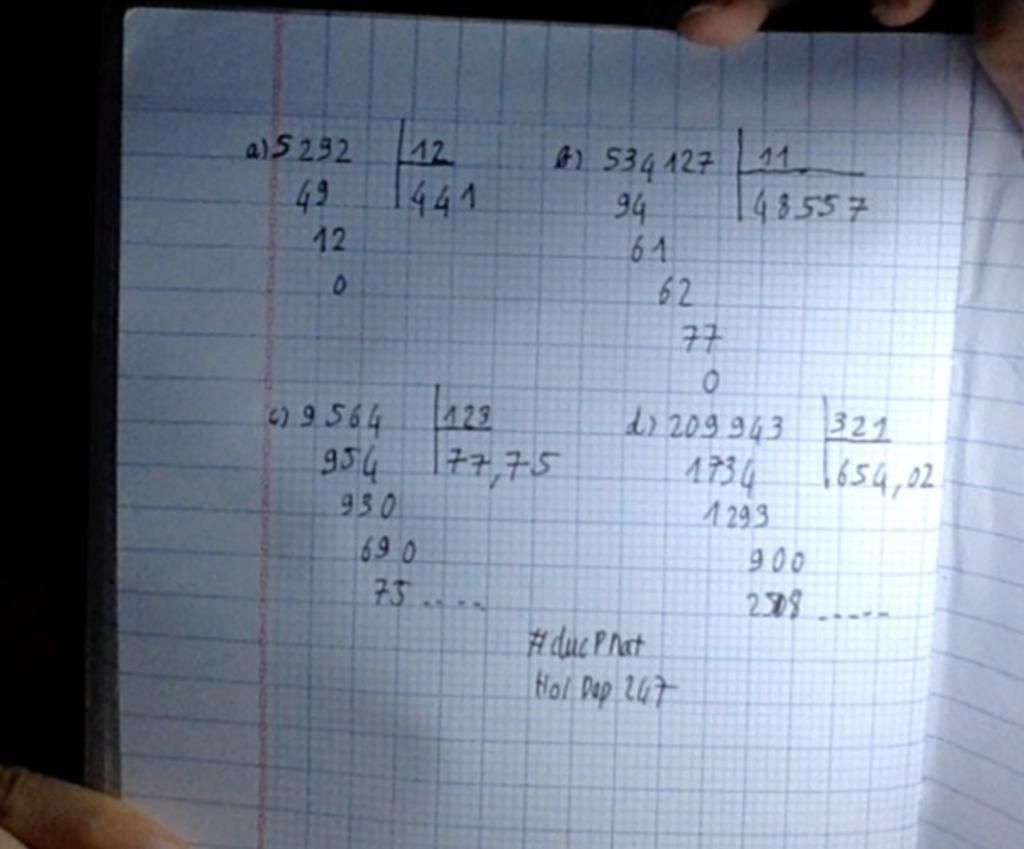 a) 5292 12
49 441
12
0
b) 534127 11
94 48557
61
62
77
0
c) 9564 123
954 77,75
930
690
75 ....
d) 209943 321
1734 654,02
1293
900
258 .....
#ducPhat
Hoi Dap 247